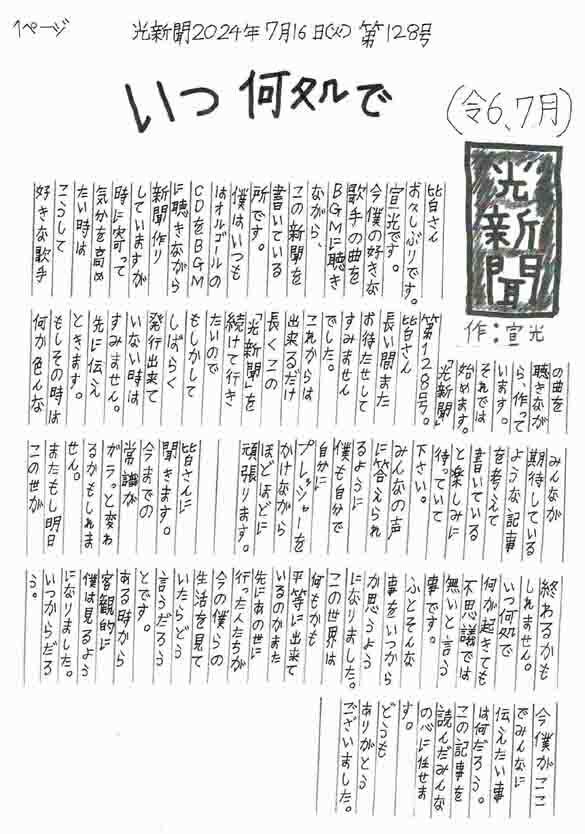 1ページ
光新聞2024年7月16日(火) 第128号
いつ何処で
(令6、7月)
光新聞
作:宣光
皆さん
お久しぶりです。
宣光です。
今僕の好きな
歌手の曲を
BGMに聴き
ながら、
この新聞を
書いている
所です。
僕はいつも
はオルゴールの
CDをBGM
に聴きながら
新聞作り
していますが
時に寄って
気分を高め
たい時は
こうして
好きな歌手
の曲を
聴きなが
ら、作って
います。
それでは
始めます。
「光新聞」
第128号。
皆さん
長い間また
お待たせして
すみません
でした。
これからは
出来るだけ
長くこの
「光新聞」を
続けて行き
たいので
もしかして
しばらく
発行出来て
いない時は
すみません。
先に伝え
ときます。
もしその時は
何か色んな
みんなが
期待している
ような記事
を考えて
書いている
と楽しみに
待っていて
下さい。
みんなの声
に答えられ
るように
僕も自分で
自分に
プレッシャーを
かけながら
ほどほどに
頑張ります。
皆さんに
聞きます。
今までの
常識が
ガラっと変わ
るかもしれま
せん。
またもし明日
この世が
終わるかも
しれません。
いつ何処で
何が起きても
不思議では
無いと言う
事です。
ふとそんな
事をいつから
か思うよう
になりました。
この世界は
何もかも
平等に出来て
いるのかまた
先にあの世に
行った人たちが
今の僕らの
生活を見て
いたらどう
言うだろう
とです。
ある時から
客観的に
僕は見るよう
になりました。
いつからだろ
う。
今僕がここ
でみんなに
伝えたい事
は何だろう。
この記事を
読んだみんな
の心に任せま
す。
どうも
ありがとう
ございました。